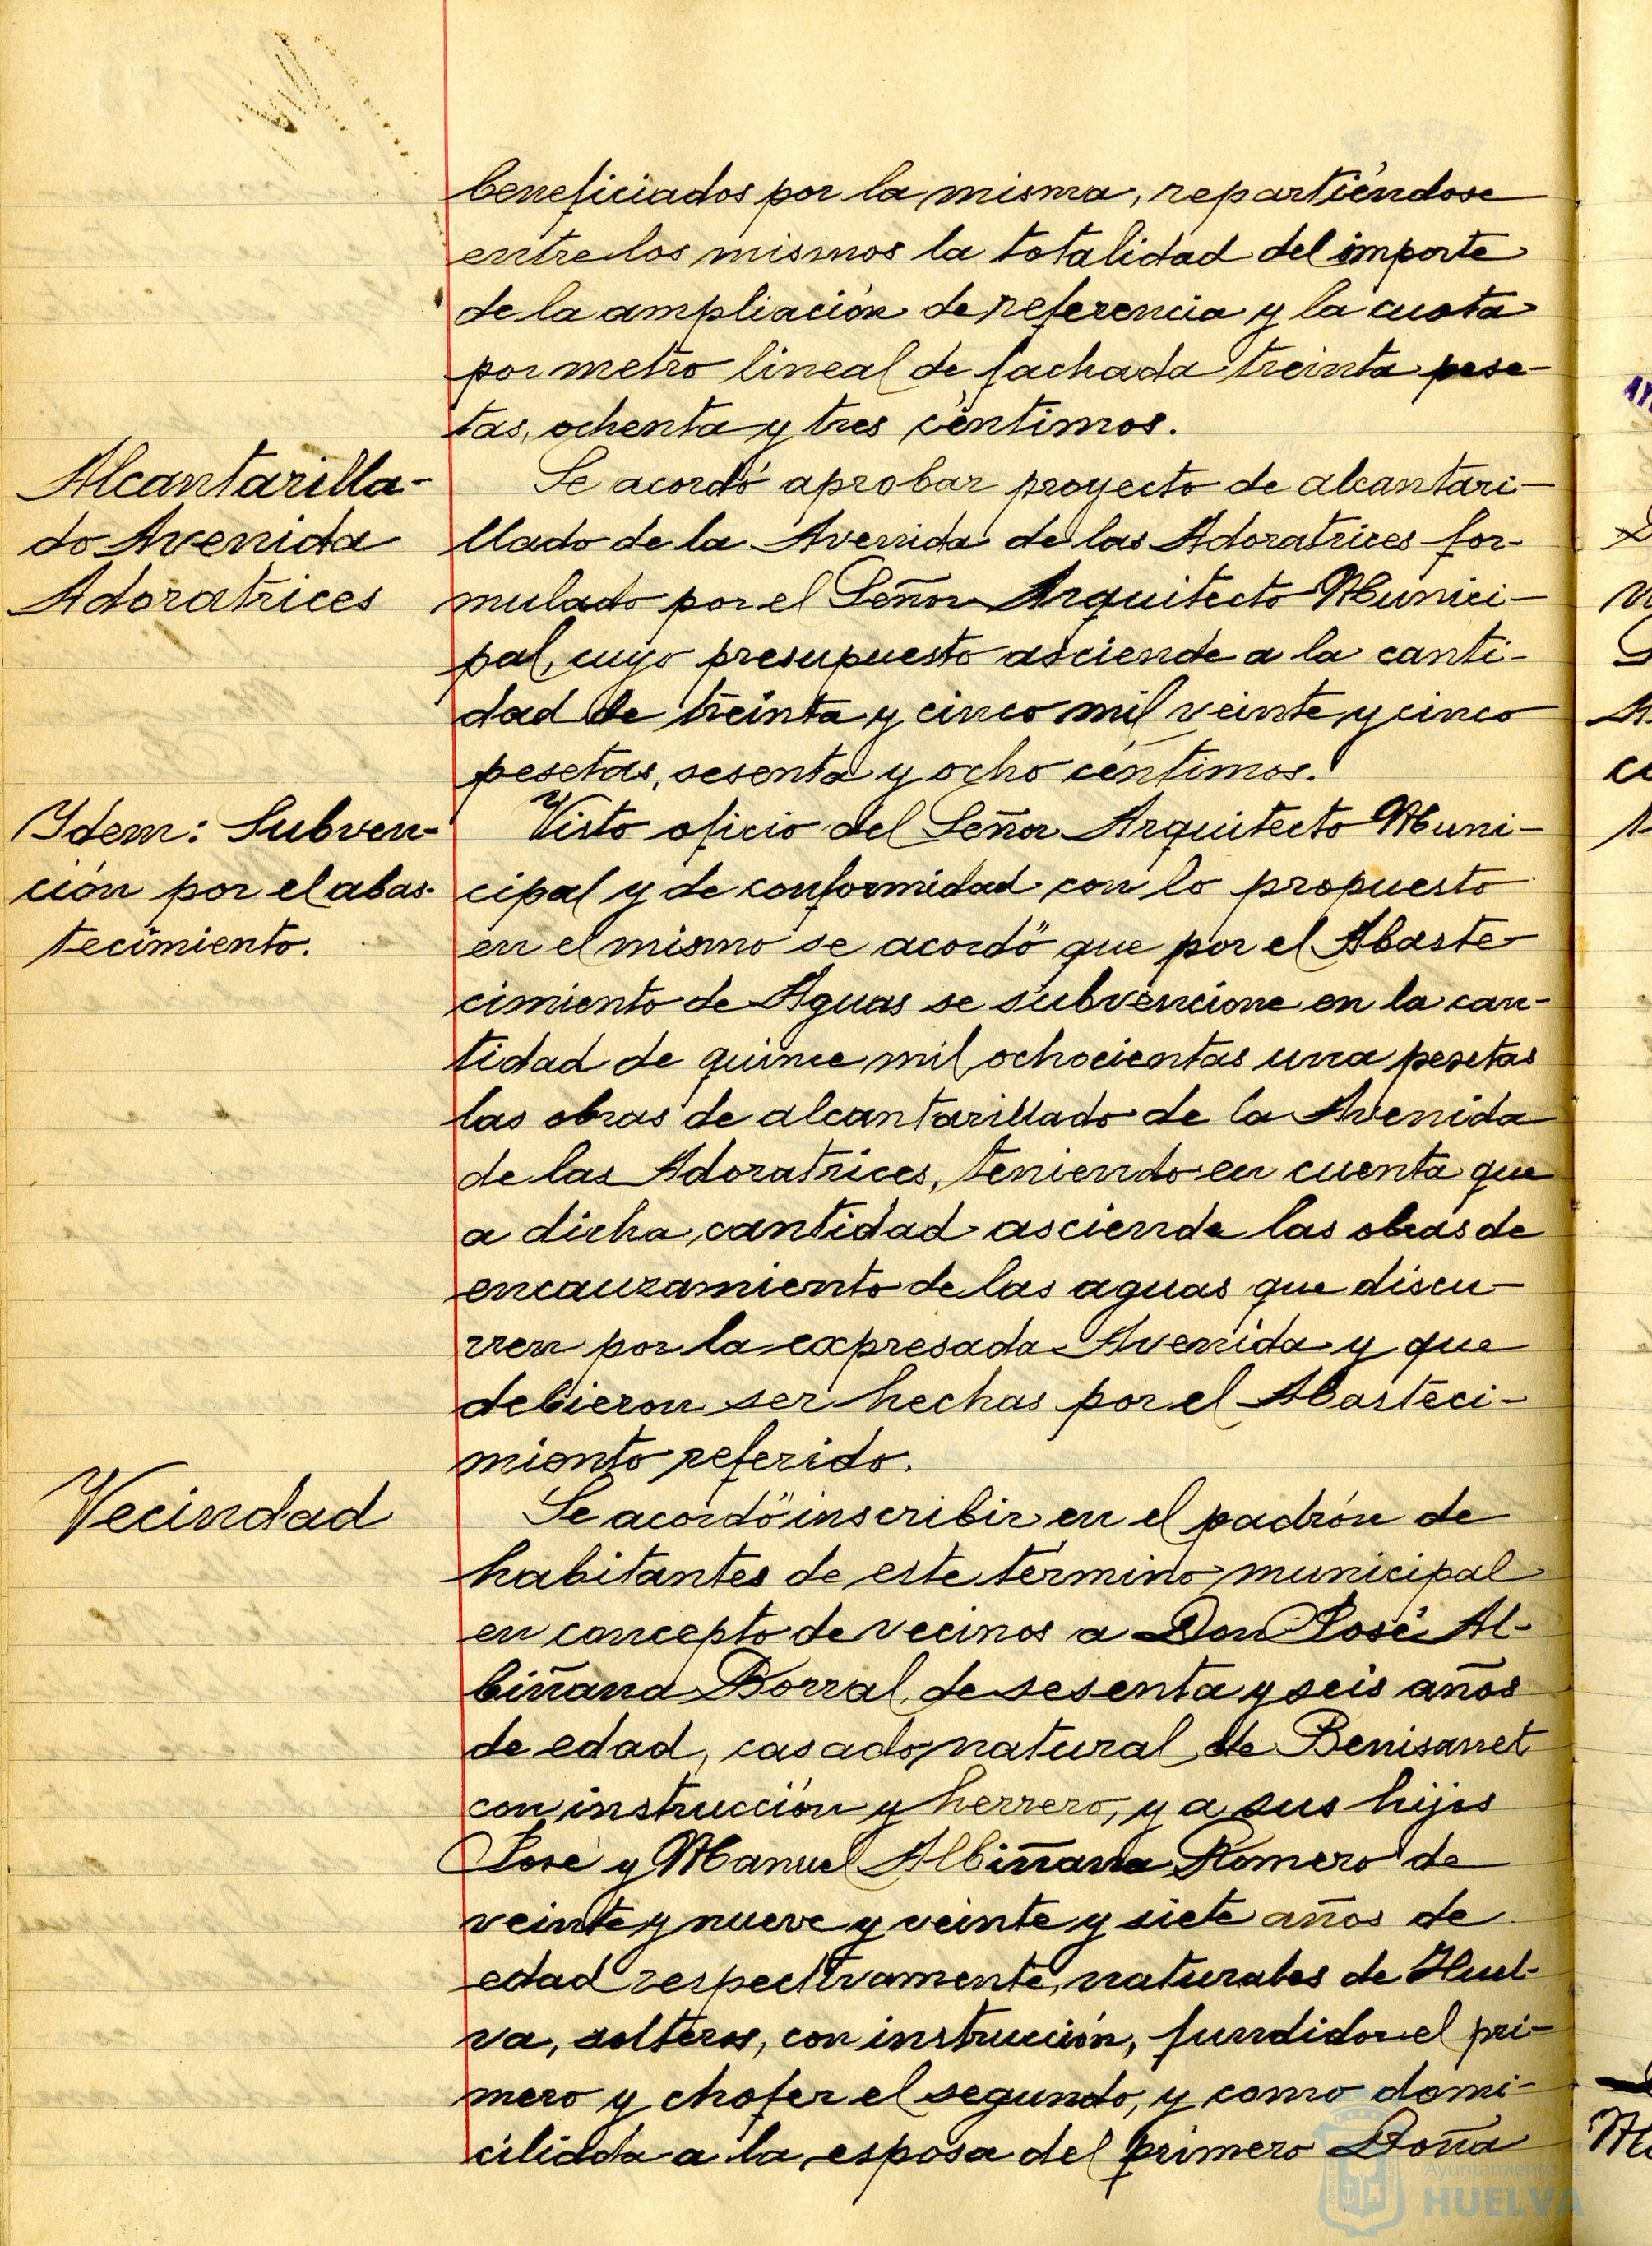 beneficiados por la misma, repartiéndose
entre los mismos la totalidad del importe
de la ampliación de referencia y la cuota
por metro lineal de fachada treinta pese-
tas, ochenta y tres céntimos.
Alcantarilla-
do Avenida
Adoratrices
Se acordó aprobar proyecto de alcantari-
llado de la Avenida de las Adoratrices for-
mulado por el Señor Arquitecto Munici-
pal, cuyo presupuesto asciende a la canti-
dad de treinta y cinco mil veinte y cinco
pesetas, sesenta y ocho céntimos.
Ydem: Subven-
ción por el abas-
tecimiento.
Visto oficio del Señor Arquitecto Muni-
cipal y de conformidad con lo propuesto
en el mismo se acordó que por el Abaste
cimiento de Aguas se subvencione en la can-
tidad de quince mil ochocientas una pesetas
las obras de alcantarillado de la Avenida
de las Adoratrices, teniendo en cuenta que
a dicha cantidad asciende las obras de
encauzamiento de las aguas que discu-
rren por la expresada Avenida y que
debieron ser hechas por el Abasteci-
miento referido.
Vecindad
Se acordó inscribir en el padrón de
habitantes de este término municipal
en concepto de vecinos a Don José Al-
biñana Borral, de sesenta y seis años
de edad, casado, natural de Benisanet
con instrucción y herrero, y a sus hijos
José y Manuel Albiñana Romero de
veinte y nueve y veinte y siete años de
edad respectivamente, naturales de Huel-
va, solteros, con instrucción, fundidor el pri-
mero y chofer el segundo, y como domi-
ciliada a la esposa del primero Doña
Ayuntamiento de
HUELVA